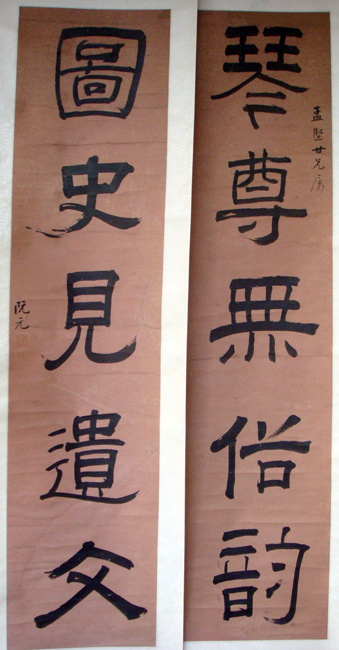 琴尊無俗韵
孟堅廿兄属
圖史見遺文
阮元